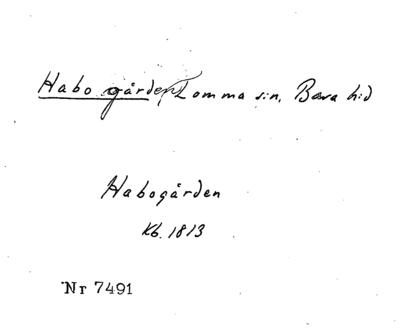 Habo gården, Lomma s:n, Bara h:d
Habogården
Kb. 1813
Nr 7491